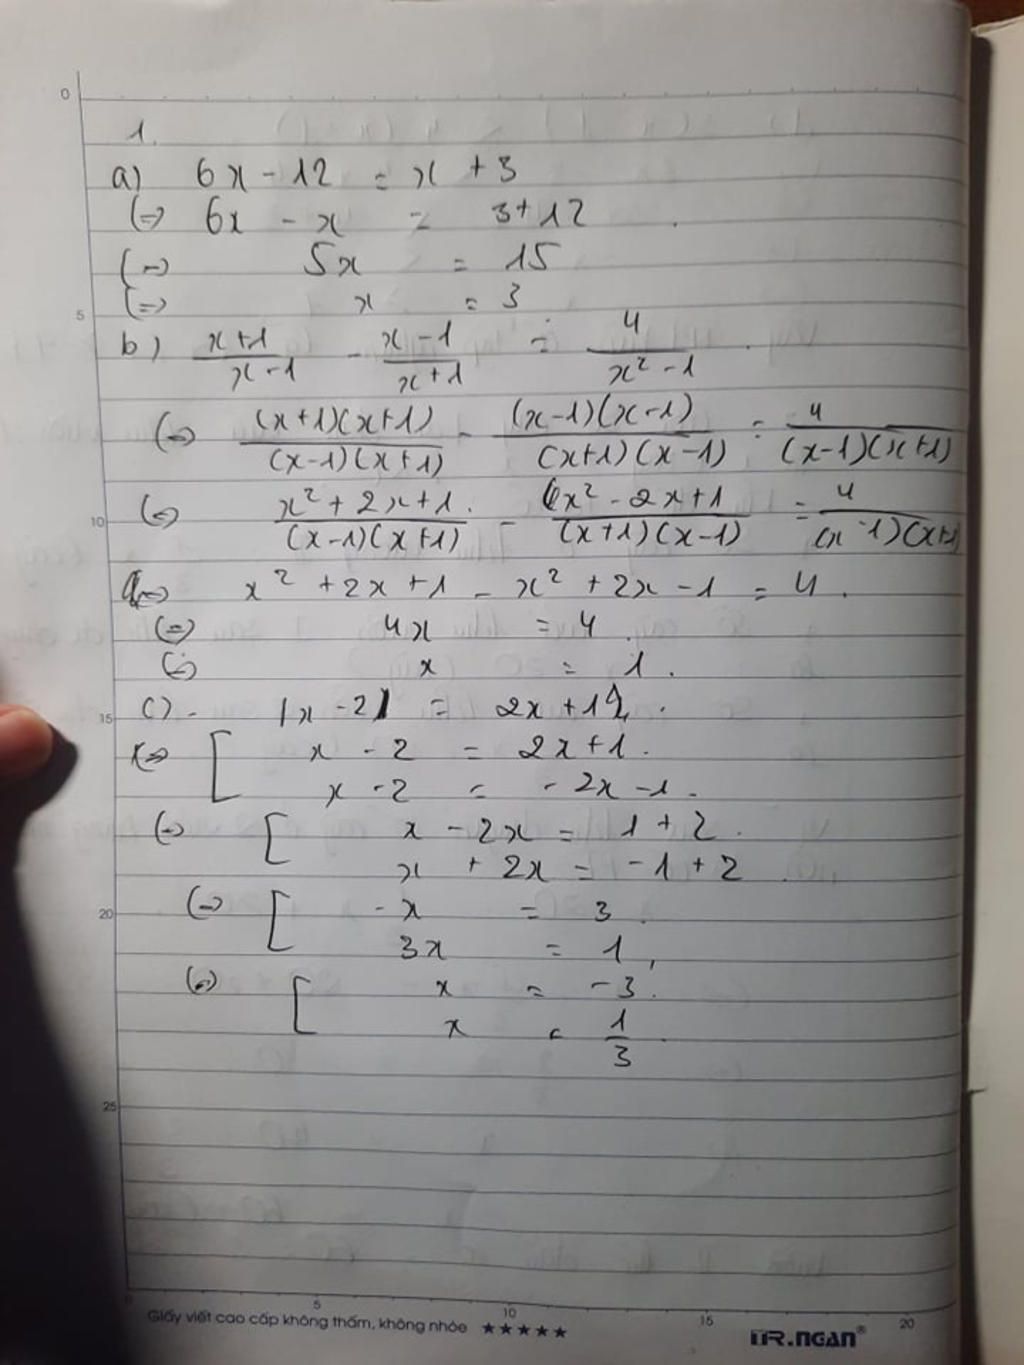 0
1.
a) 6x - 12 = x + 3
(=) 6x - x = 3 + 12
(=) 5x = 15
5
(=) x = 3
b) \frac{x+1}{x-1} - \frac{x-1}{x+1} = \frac{4}{x^2-1}
(=) \frac{(x+1)(x+1)}{(x-1)(x+1)} - \frac{(x-1)(x-1)}{(x+1)(x-1)} = \frac{4}{(x-1)(x+1)}
10
(=) \frac{x^2+2x+1}{(x-1)(x+1)} - \frac{x^2-2x+1}{(x+1)(x-1)} = \frac{4}{(x-1)(x+1)}
(=) x² + 2x + 1 - x² + 2x - 1 = 4.
(=) 4x = 4.
(=) x = 1.
15
c). |x - 2| = 2x + 1.
(=) [ x - 2 = 2x + 1.
x - 2 = -2x - 1.
(=) [ x - 2x = 1 + 2.
x + 2x = -1 + 2.
20
(=) [ -x = 3.
3x = 1,
(=) [ x = -3.
x = \frac{1}{3}.
25
0 5 10 15 20
Giấy viết cao cấp không thấm, không nhòe ★★★★★
TR.NGAN®